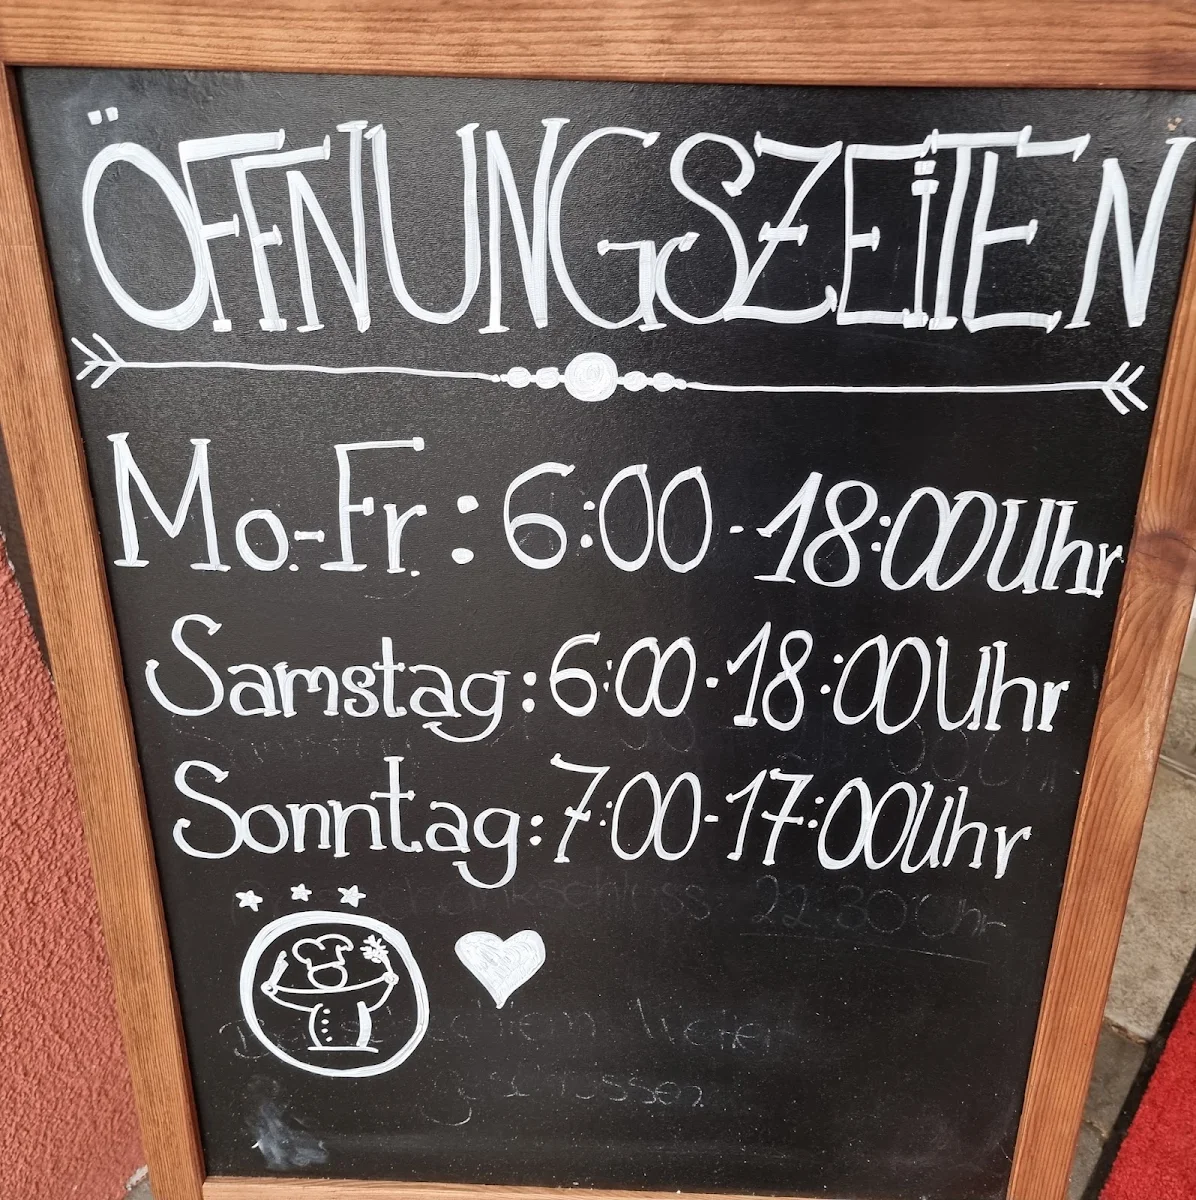 ÖFFNUNGSZEITEN
Mo.-Fr.: 6:00-18:00Uhr
Samstag:6:00-18:00Uhr
Sonntag:7:00-17:00Uhr
22:30 Uhr